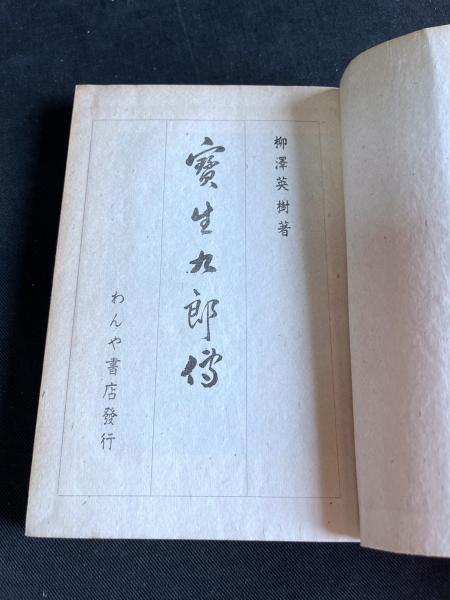 柳澤英樹著
寶生九郎傳
わんや書店發行